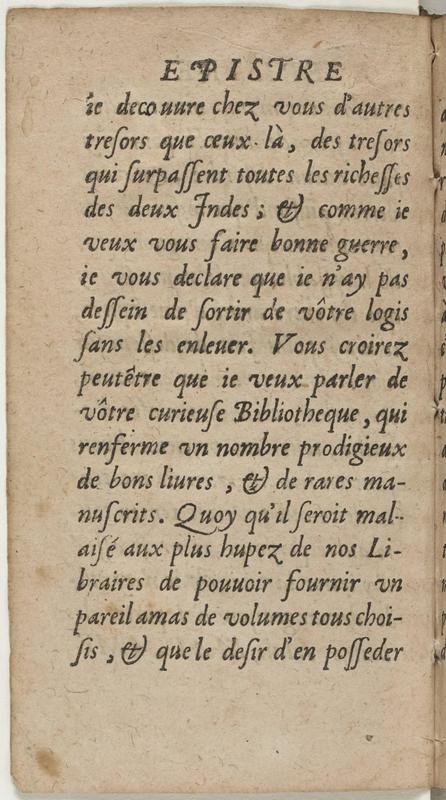 EPISTRE
ie decouure chez vous d'autres
treſors que ceux-là, des treſors
qui ſurpaſſent toutes les richeſſes
des deux Indes ; & comme ie
veux vous faire bonne guerre,
ie vous declare que ie n'ay pas
deſſein de ſortir de vôtre logis
ſans les enleuer. Vous croirez
peutêtre que ie veux parler de
vôtre curieuſe Bibliotheque, qui
renferme vn nombre prodigieux
de bons liures , & de rares ma-
nuſcrits. Quoy qu'il ſeroit mal-
aiſé aux plus hupez de nos Li-
braires de pouuoir fournir vn
pareil amas de volumes tous choi-
ſis , & que le deſir d'en poſſeder